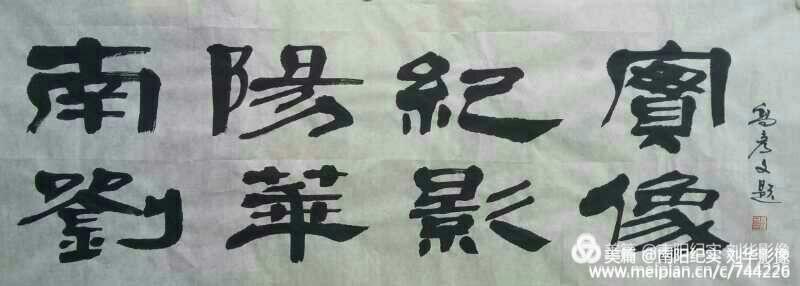 南陽紀實
劉華影像
彦文題
美篇 @南阳纪实 刘华影像
www.meipian.cn/c/744226